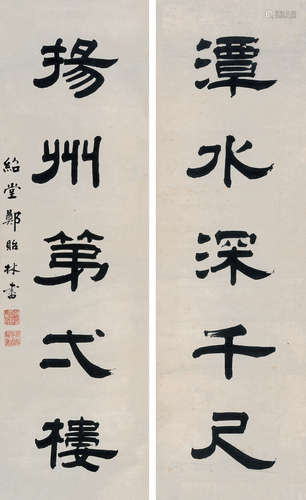 潭水深千尺
揚州第弌樓
紹堂鄭貽林書